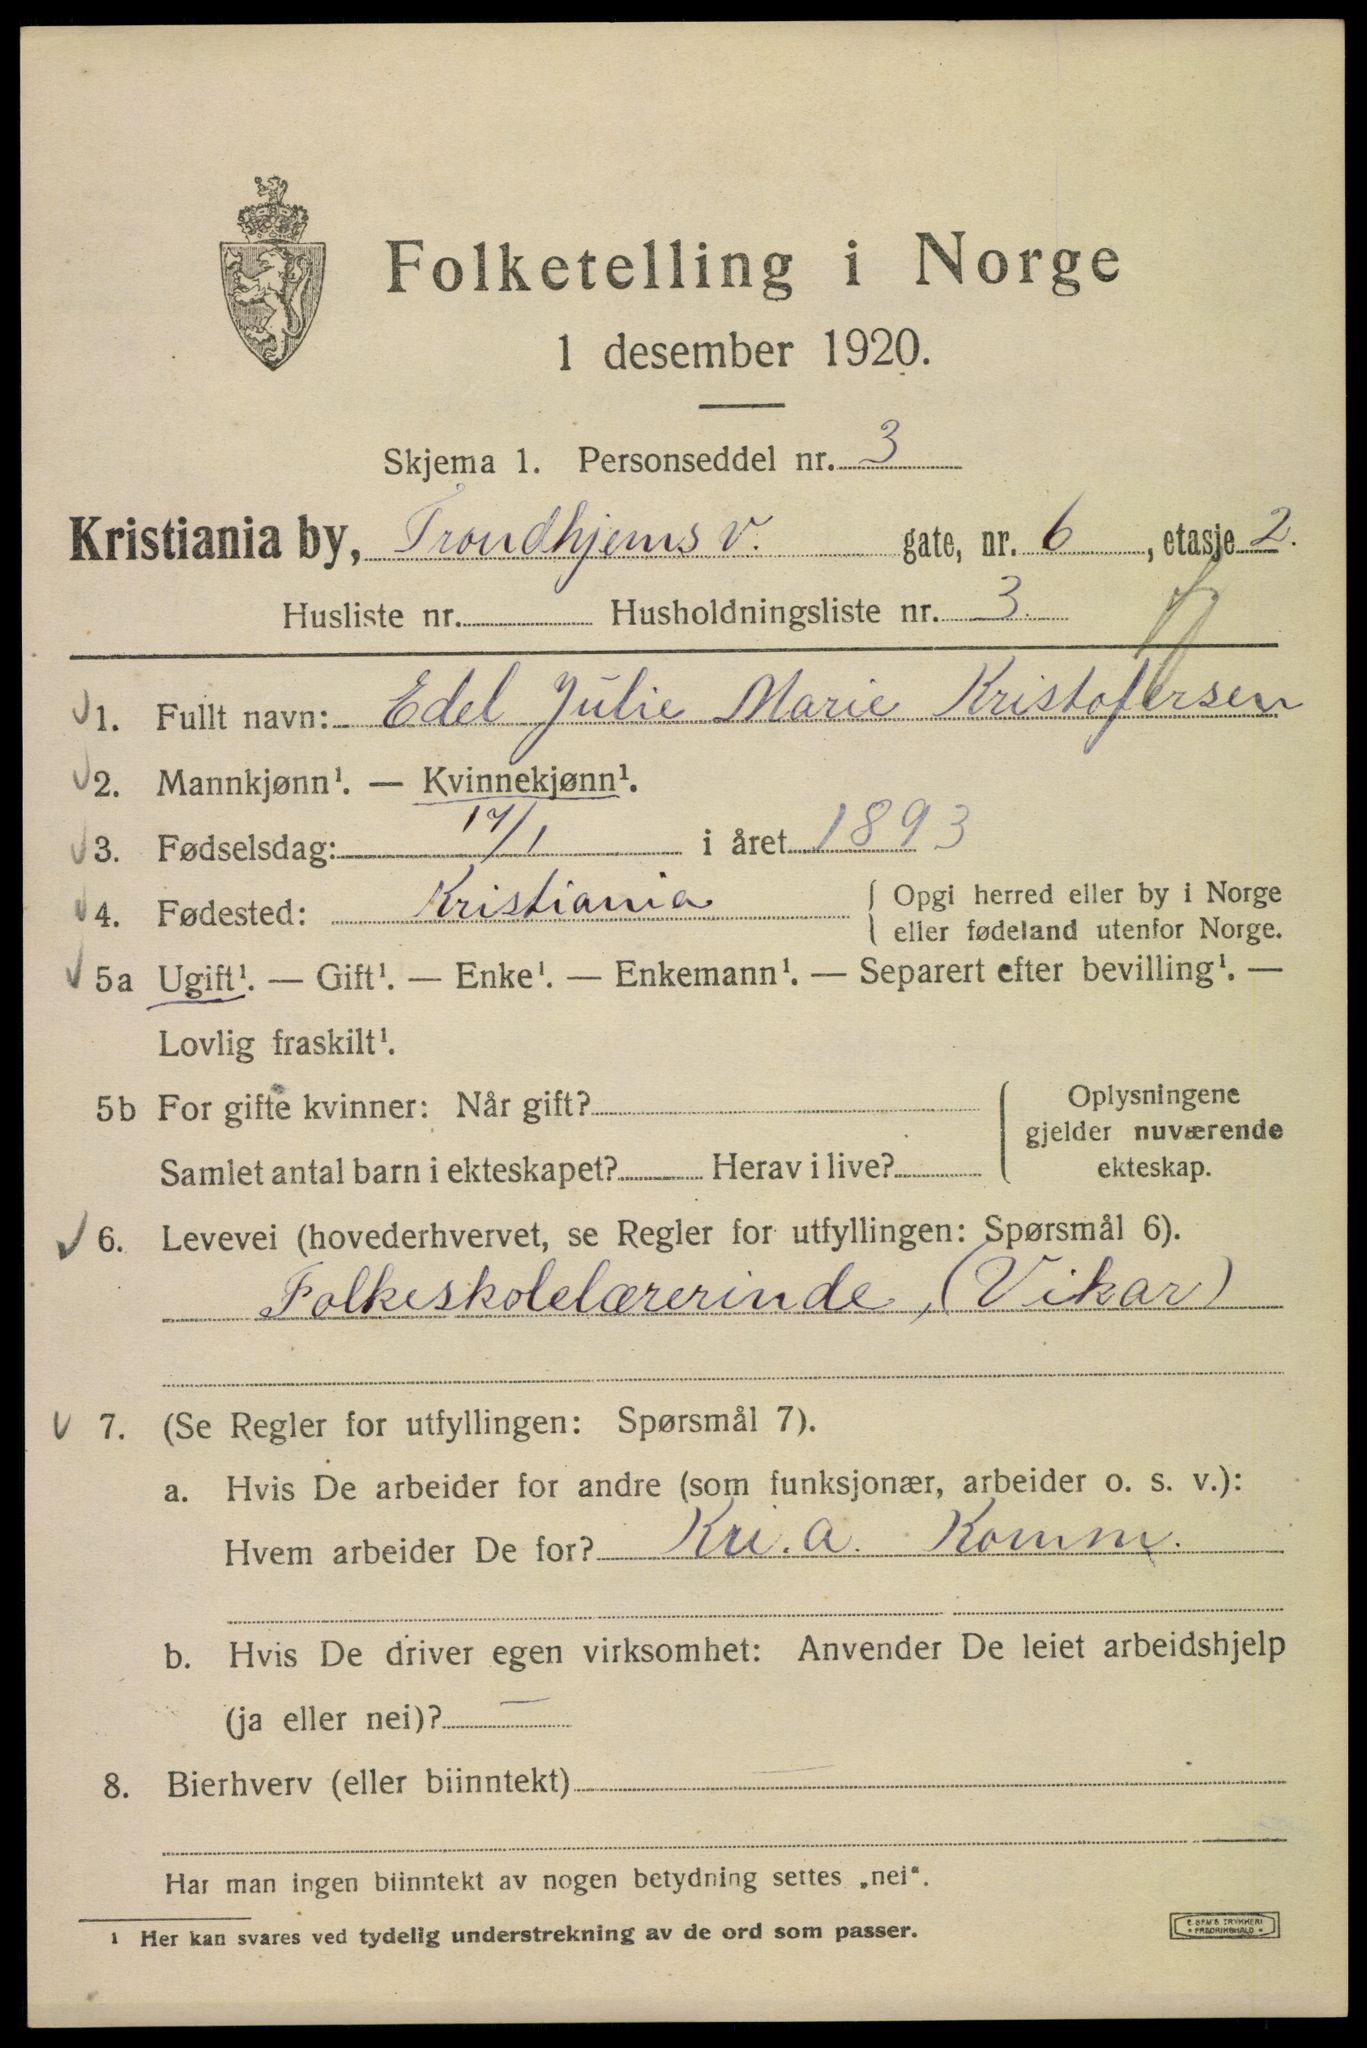 Folketelling i Norge
1 desember 1920.
Skjema 1. Personseddel nr. 3
Kristiania by, Trondhjems v. gate, nr. 6, etasje 2.
Husliste nr. Husholdningsliste nr. 3.
1. Fullt navn: Edel Julie Marie Kristofersen
2. Mannkjønn¹. — Kvinnekjønn¹.
3. Fødselsdag: 17/1 i året 1893
4. Fødested: Kristiania
Opgi herred eller by i Norge
eller fødeland utenfor Norge.
5a Ugift¹. — Gift¹. — Enke¹. — Enkemann¹. — Separert efter bevilling¹. —
Lovlig fraskilt¹.
5b For gifte kvinner: Når gift?
Samlet antal barn i ekteskapet? Herav i live?
Oplysningene
gjelder nuværende
ekteskap.
6. Levevei (hovederhvervet, se Regler for utfyllingen: Spørsmål 6).
Folkeskolelærerinde, (Vikar)
7. (Se Regler for utfyllingen: Spørsmål 7).
a. Hvis De arbeider for andre (som funksjonær, arbeider o. s. v.):
Hvem arbeider De for? Kri.a. Komm.
b. Hvis De driver egen virksomhet: Anvender De leiet arbeidshjelp
(ja eller nei)? —
8. Bierhverv (eller biinntekt) —
Har man ingen biinntekt av nogen betydning settes „nei“.
¹ Her kan svares ved tydelig understrekning av de ord som passer.
TRYKKERI
FREDRIKSHALD